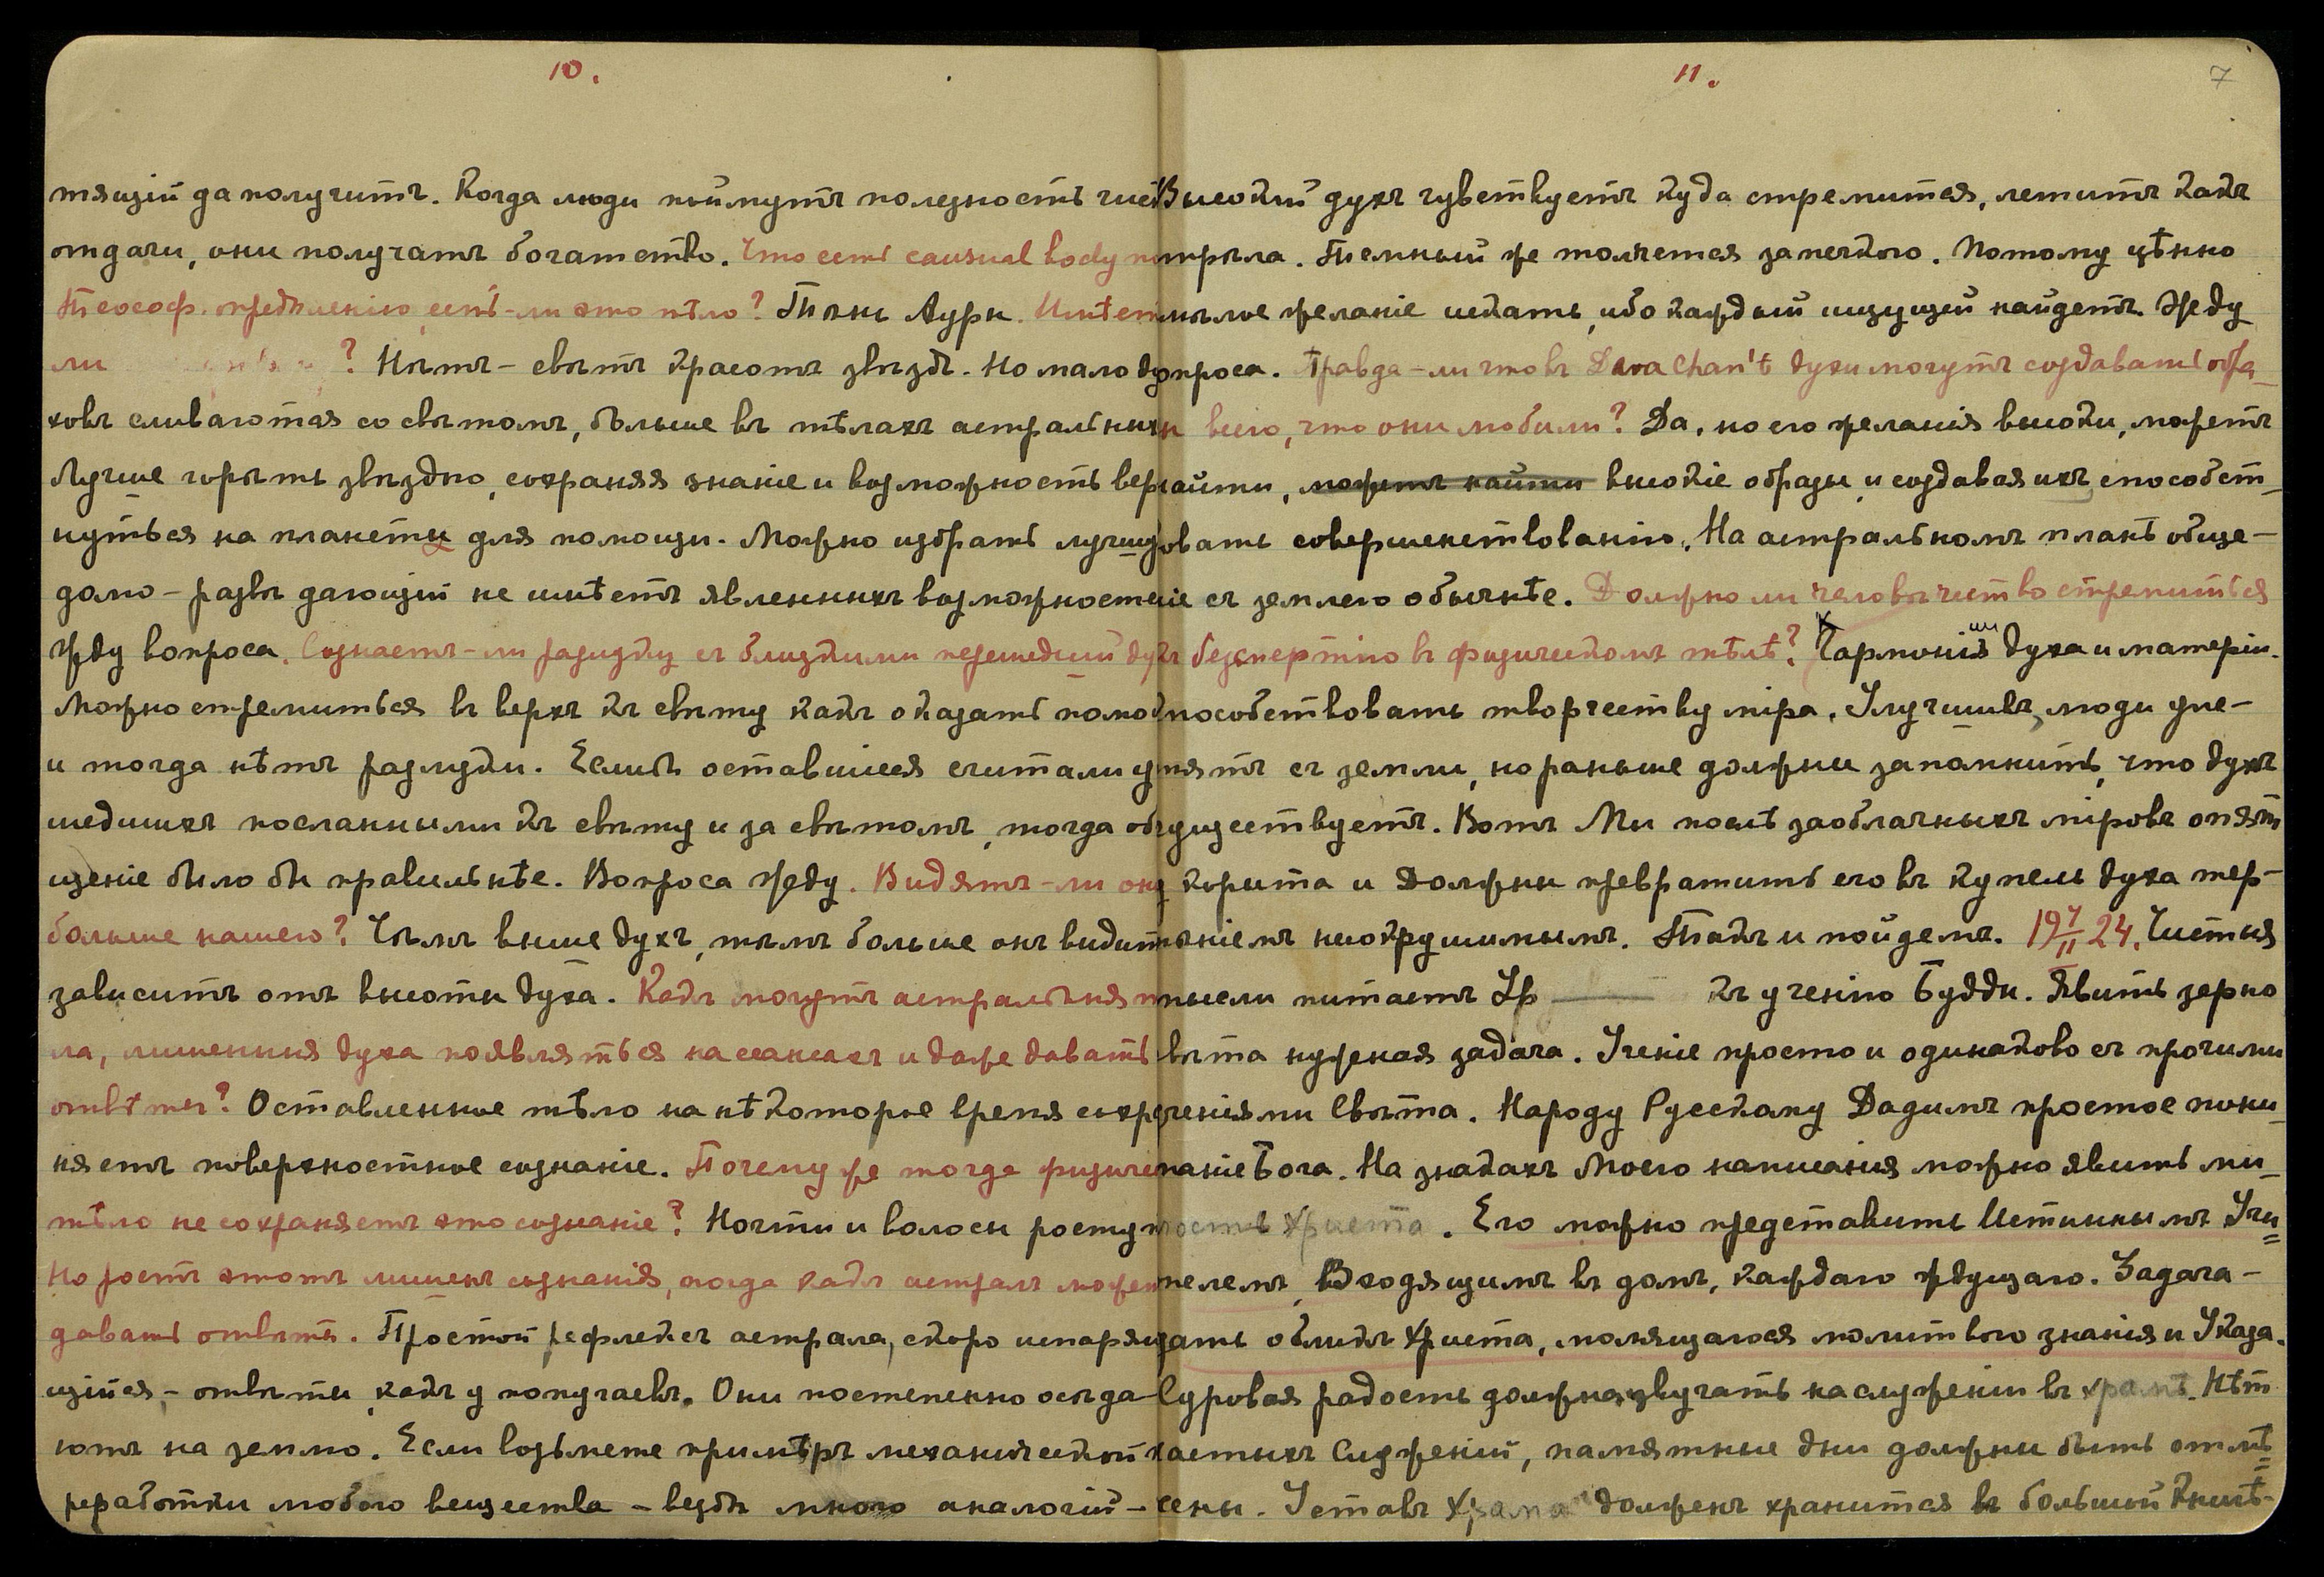 10.
тящій да получитъ. Когда люди поймутъ полезность
отдачи, они получатъ богатство. Что есть causual body
Теософ. опредѣленію, есть-ли это тѣло? Ткань Ауры.
ли ? Нѣтъ – свѣтъ красотъ звѣздъ. Но мало
ховъ сливаются со свѣтомъ, больше въ тѣлахъ астральныхъ
Лучше горѣть звѣздно, сохраняя знаніе и возможность вер
нуться на планеты для помощи. Можно избрать
дамо – развѣ дающій не имѣетъ явленныхъ возможностей
Жду вопроса. Сознаетъ-ли разлуку съ близкими перешедшій духъ
Можно стремиться въ верхъ къ свѣту какъ оказать
и тогда нѣтъ разлуки. Еслибъ оставшіеся считали
шедшихъ посланными къ свѣту и за свѣтомъ, тогда
щеніе было бы правильнѣе. Вопроса жду. Видятъ-ли они
больше нашего? Чѣмъ выше духъ, тѣмъ больше онъ видитъ
зависитъ отъ высоты духа. Какъ могутъ астральныя
ла, лишенныя духа появляться на сеансахъ и даже давать
отвѣты? Оставленное тѣло на нѣкоторое время сохра
няетъ поверхностное сознаніе. Почему же тогда физиче
тѣло не сохраняетъ это сознаніе? Ногти и волосы ростутъ
Но ростъ этотъ лишенъ сознанія, тогда какъ астралъ можетъ
давать отвѣты. Простой рефлексъ астрала, скоро испаряю
щійся, – отвѣты, какъ у попугаевъ. Они постепенно осѣда-
ютъ на землю. Если возьмете примѣръ механической
реработки любого вещества – вездѣ много аналогій –
11.
7
Высокій духъ чувствуетъ куда стремится, летитъ какъ
стрѣла. Темный же толчется за печкою. Потому цѣнно
желаніе искать, ибо каждый ищущій найдетъ. Жду
вопроса. Правда-ли что въ Devachan't духи могутъ создавать обра-
всего, что они любили? Да, но его желанія высоки, можетъ
найти, можетъ найти высокіе образы, и создавая ихъ способст-
вовать совершенствованію. На астральномъ планѣ обще-
ніе съ землею обычнѣе. Должно ли человѣчество стремиться
къ безсмертію въ физическомъ тѣлѣ? Къ гармоніи духа и матеріи.
способствовать творчеству міра. Улучшивъ, люди уле-
тятъ съ земли, но раньше должны запомнить, что духъ
существуетъ. Вотъ Мы послѣ заоблачныхъ міровъ опять
у корыта и Должны превратить его въ купель духа тер-
пѣніемъ несокрушимымъ. Такъ и пойдемъ. 19 7/II 24. Чистыя
мысли питаетъ Ур къ ученію Будды. Явить зерно
свѣта нужная задача. Ученіе просто и одинаково съ прочими
ученіями Свѣта. Народу Русскому Дадимъ простое пони-
маніе Бога. На знакахъ Моего написанія можно явить ми-
лость Христа. Его можно представить Истиннымъ Учи
телемъ, Входящимъ въ домъ, каждаго ждущаго. Задача –
дать обликъ Христа, молящагося молитвою знанія и Указа.
Суровая радость должна звучать на служеніи въ храмѣ. Нѣт
частыхъ Служеній, памятные дни должны быть отмѣ
чены. Уставъ Храма долженъ храниться въ большой Книгѣ-